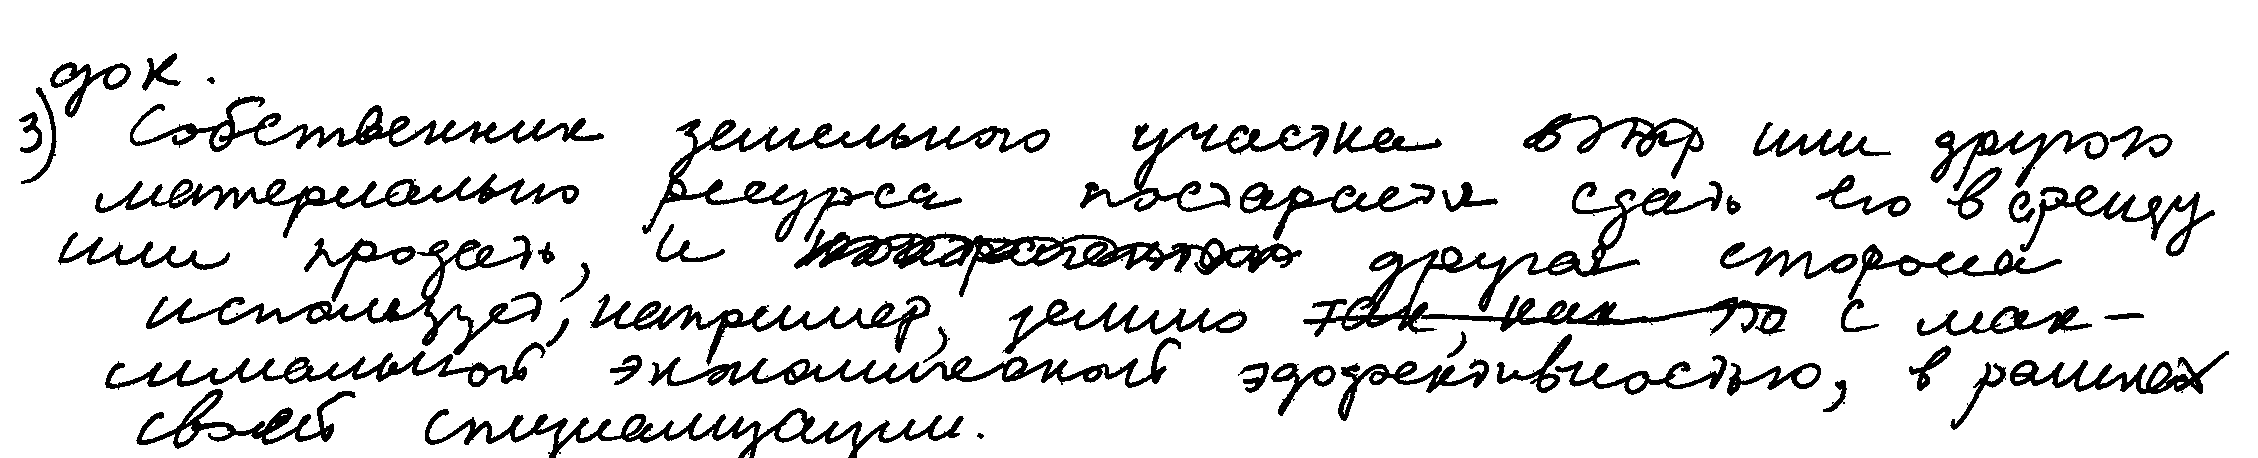 док.
3) Собственник земельного участка или другого
материально ресурса постарается сдать его в аренду
или продать, и другая сторона
использует, например, землю с мак-
симальной экономической эффективностью, в рамках
своей специализации.